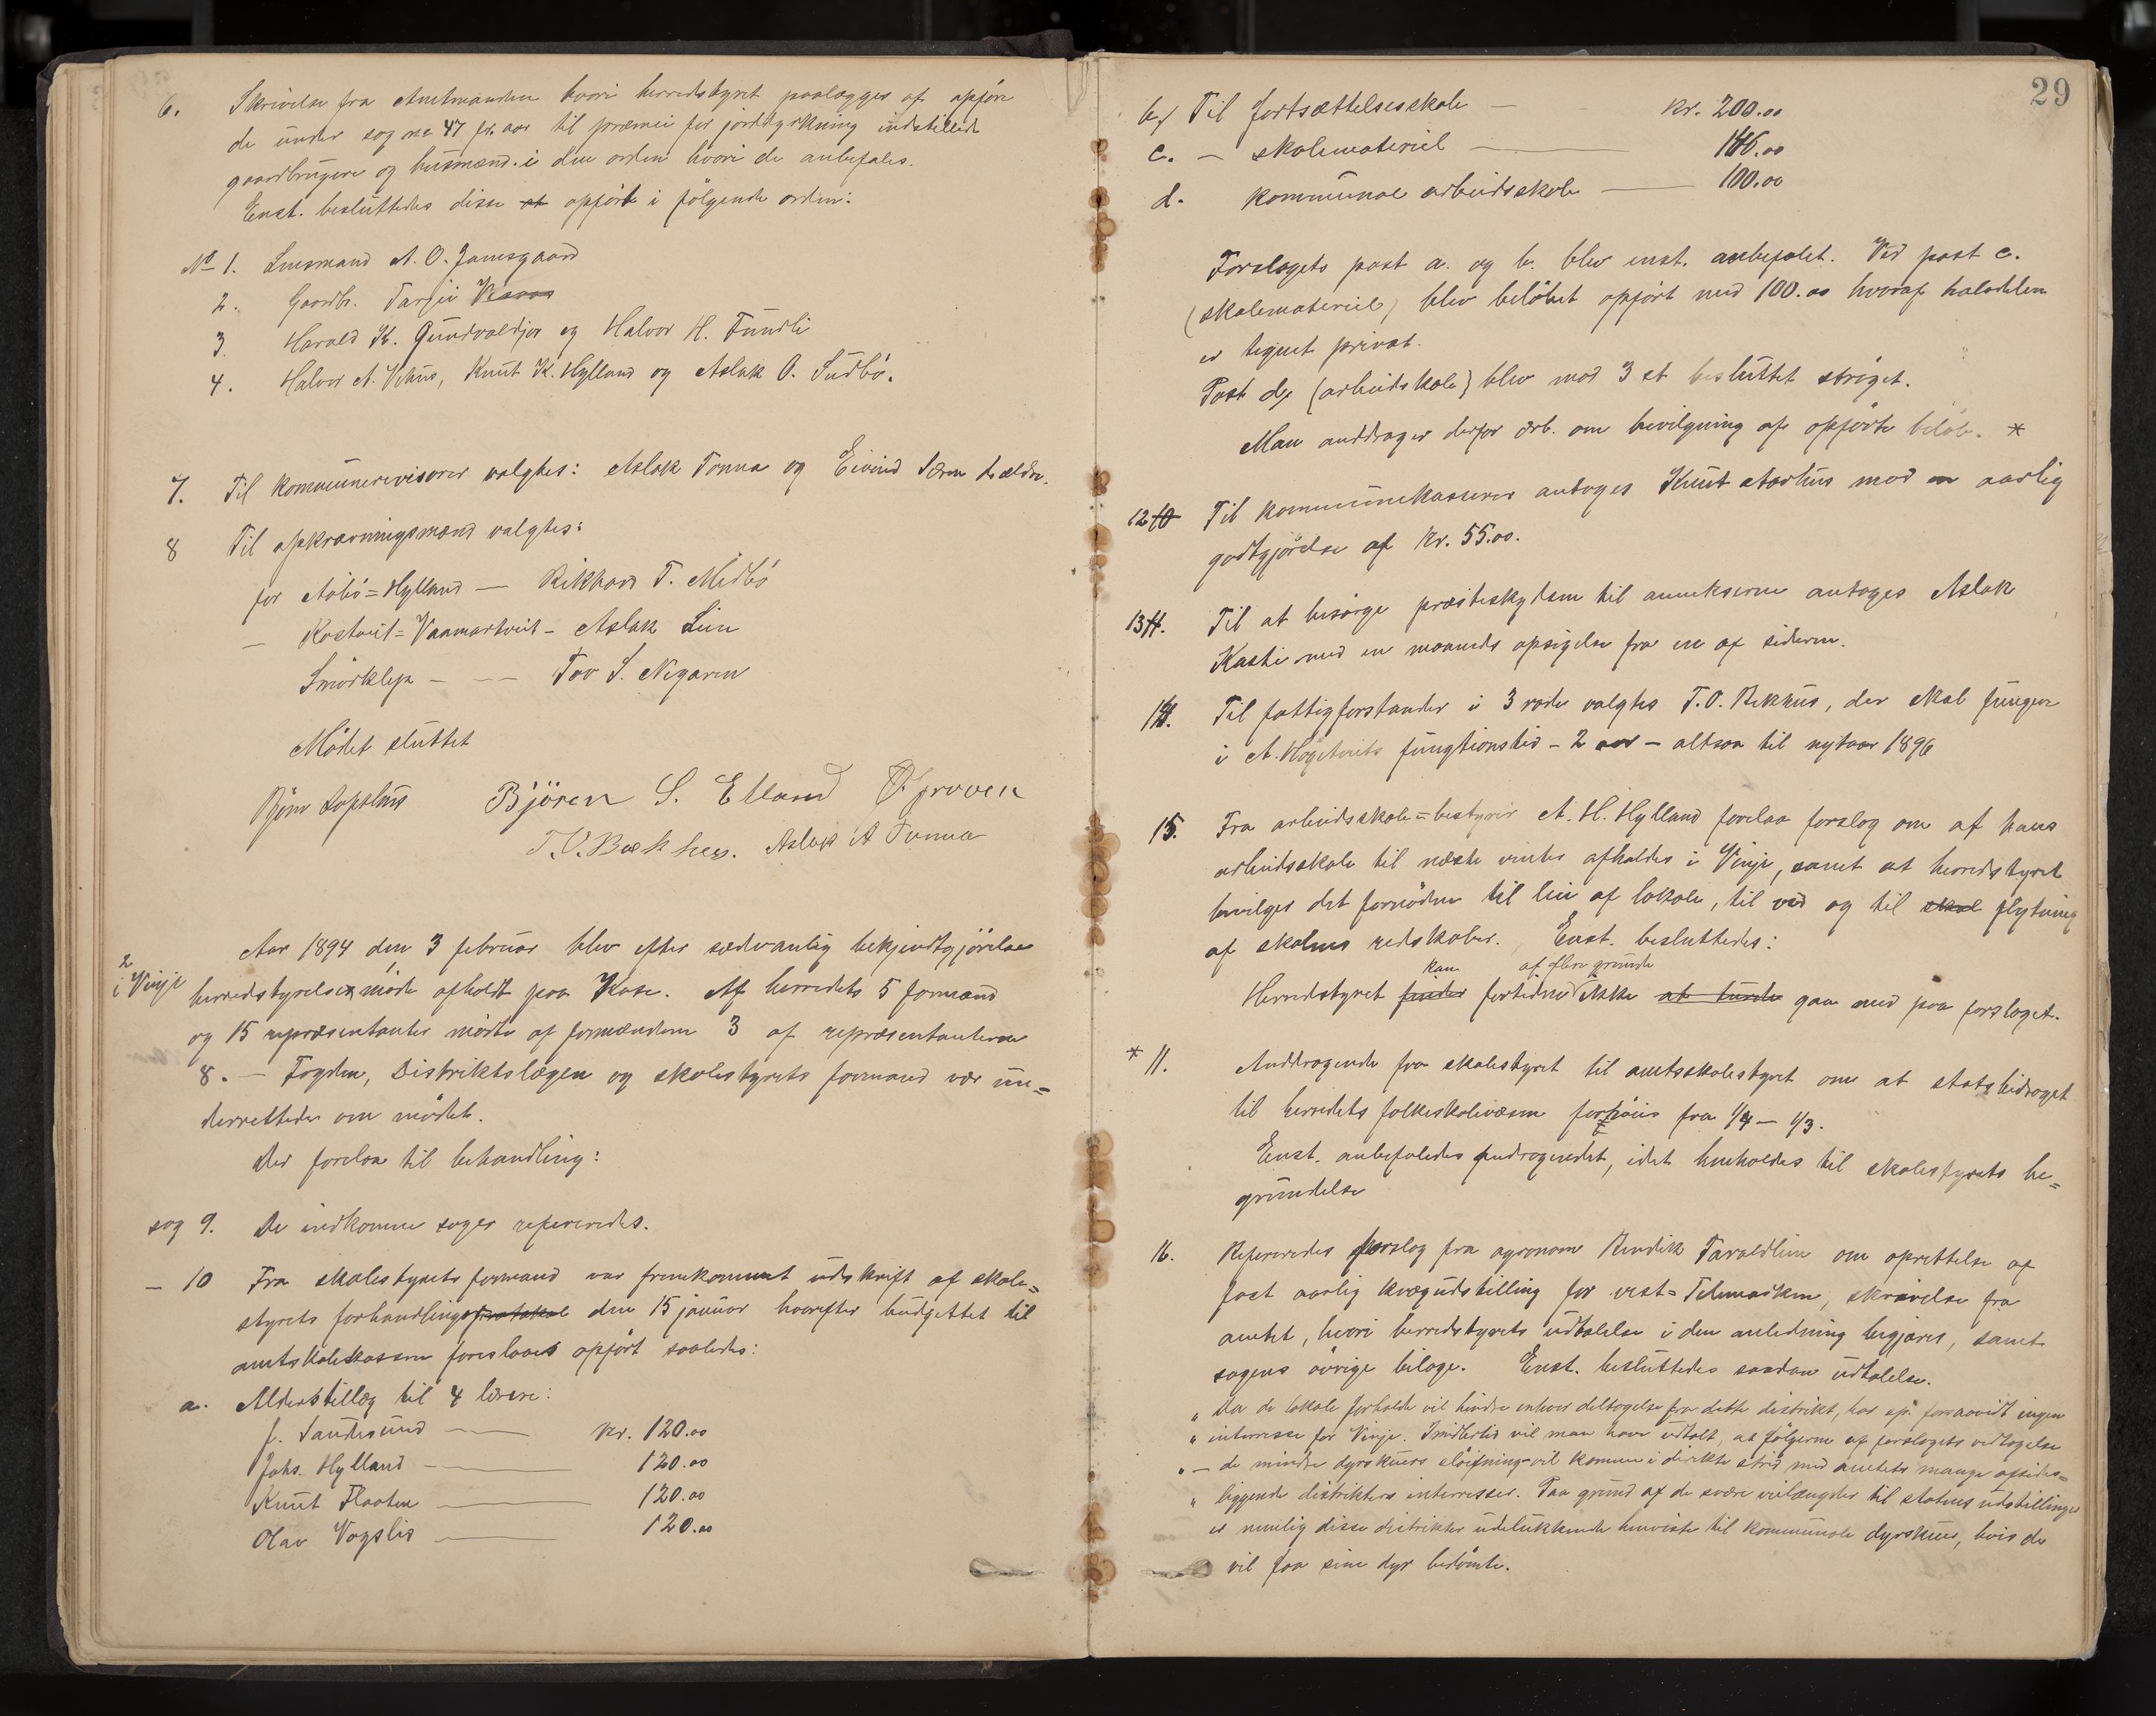 6. Skrivelse fra Amtmanden hvori herredstyret paalægges at opføre
de under sag no 47 f. aar til præmie for jorddyrkning indstillede
gaardbrugere og husmænd i den orden hvori de anbefales.
Enst. besluttedes disse at opført i følgende orden:
No 1. Lensmand A. O. Jamsgaard
2. Gaardb. Tarjei
3. Harald K. Gundvaldjor og Halvor H. Fundli
4. Halvor A. Vehus, Knut K. Hylland og Aslak O. Sudbö.
7. Til kommunerevisorer valgtes: Aslak Tonna og Eivind
8 Til opkrævningsmænd valgtes:
for Aabö=Hylland — Rikhard T. Midbö
— Rostveit=Vaamartveit — Aslak Lien
Smörklep — — Tov S. Nigaren
Mödet sluttet
Björn Lofthus Björen S. Etland
T. O. Bækhus. Aslak A Tonna
2
i Vinje
Aar 1894 den 3 februar blev efter sædvanlig bekjendtgjörelse
herredstyrelsesmöde afholdt paa Kase. Af herredets 5 formænd
og 15 repræsentanter mödte af formændene 3 af repræsentanterne
8. — Fogden, Distriktslægen og skolestyrets formand var un=
derrettede om mödet.
Der forelaa til behandling:
sag 9. De indkomne sager refereredes.
— 10 Fra skolestyrets formand var fremkommet udskrift af skole=
styrets forhandlingsprotokol den 15 januar hvorefter budgettet til
amtskolekassen foreslaaes opført saaledes:
a. Alderstillæg til 4 lærere:
J. Sandesund — kr. 120.00
Johs. Hylland — 120.00
Knut Flaaten — 120.00
Olav Vogslid — 120.00
29
b) Til fortsættelsesskole — kr. 200.00
c. — skolemateriel — 146.00
d. kommunal arbeidsskole — 100.00
Forslagets post a. og b. blev enst. anbefalet. Ved post c.
(skolemateriel) blev belöbet opfört med 100.00 hvoraf halvdelen
er tegnet privat.
Post d) (arbeidskole) blev mod 3 st besluttet ströget.
Man anddrager derfor ærb. om bevilgning af opförte belöb. *
12 10 Til kommunekasserer antoges Knut Aarhus mod en aarlig
godtgjörelse af kr. 55.00.
13 11. Til at besörge presteskydsen til annekserne antoges Aslak
Kasti med en maaneds opsigelse fra en af siderne.
14. Til fattigforstander i 3 rode valgtes T. O. Bekhus, der skal fungere
i A. Högetveits fungtionstid — 2 aar — altsaa til nytaar 1896
15. Fra arbeidsskole=bestyrer A. H. Hylland forelaa forslag om at hans
arbeidsskole til næste vinter afholdes i Vinje, samt at herredstyret
bevilger det fornödne til leie af lokale, til ved og til skol flytning
af skolens redskaber. Enst. besluttedes:
kan af flere grunde
Herredstyret finder fortiden ikke at turde gaa med paa forslaget.
* 11. Anddragende fra skolestyret til amtsskolestyret om at statsbidraget
til herredets folkeskolevæsen forhöies fra 1/4 — 1/3.
Enst. anbefaledes andragendet, idet henholdes til skolestyrets be=
grundelse
16. Refereredes forslag fra agronom Bendik Taraldlien om oprettelse af
fast aarlig kvægudstilling for vest=Telemarken, skrivelse fra
amtet, hvori herredstyrets udtalelse i den anledning begjæres, samt
sagens övrige bilage. Enst. besluttedes saadan udtalelse.
„ Da de lokale forholde vil hindre enhver deltagelse fra dette distrikt, har sp. forsaavidt ingen
„ interresse for Vinje. Imidlertid vil man have udtalt, at fölgerne af forslagets vedtagelse
„ — de mindre dyrskuers slöifning — vil komme i direkte strid med amtets mange afsides=
„ liggende distrikters interresser. Paa grund af de svære veilængder til statens udstillinger
er nemlig disse distrikter udelukkende henviste til kommunale dyrskuer, hvis de
vil faa sine dyr bedömte.